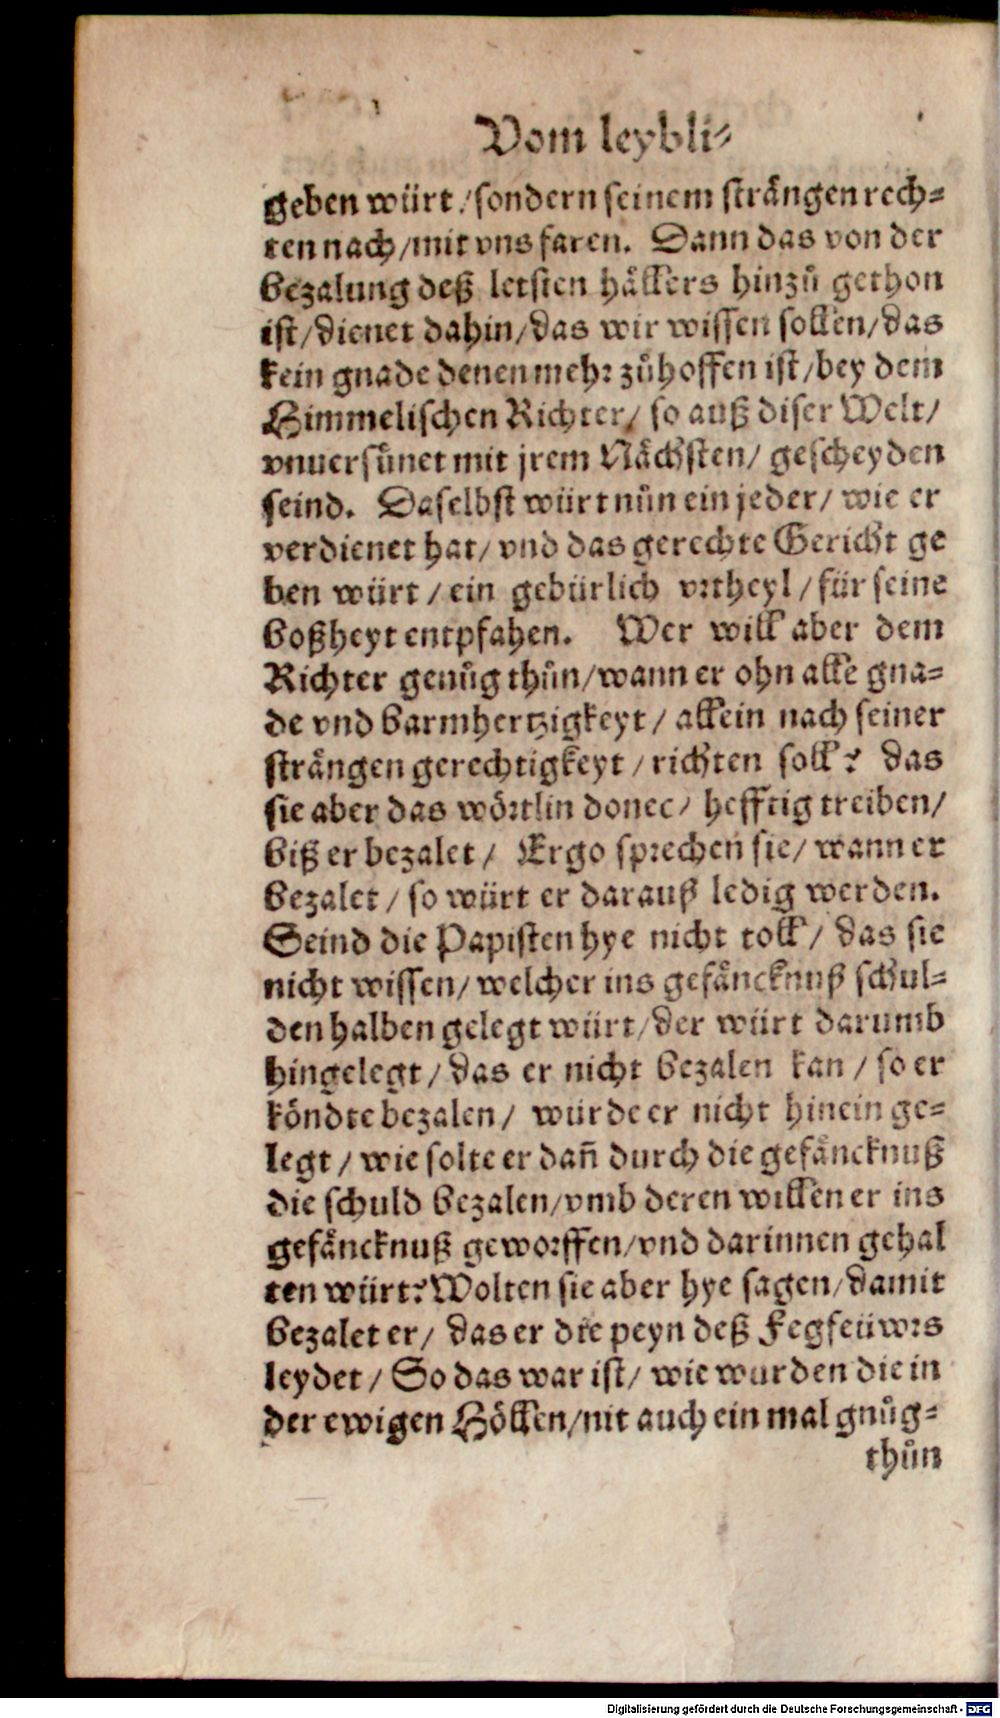 Vom leybli⸗
geben würt/ sondern seinem strången rech⸗
ten nach/ mit vns faren. Dann das von der
bezalung deß letsten hållers hinzů gethon
ist/ dienet dahin/ das wir wissen sollen/ das
kein gnade denen mehr zůhoffen ist/ bey dem
Himmelischen Richter/ so auß diser Welt/
vnuersůnet mit jrem Nåchsten/ gescheyden
seind. Daselbst würt nůn ein jeder/ wie er
verdienet hat/ vnd das gerechte Gericht ge
ben würt/ ein gebürlich vrtheyl/ für seine
boßheyt entpfahen. Wer will aber dem
Richter genůg thůn/ wann er ohn alle gna⸗
de vnd barmhertzigkeyt/ allein nach seiner
strången gerechtigkeyt/ richten soll? das
sie aber das wörtlin donec/ hefftig treiben/
biß er bezalet/ Ergo sprechen sie/ wann er
bezalet/ so würt er darauß ledig werden.
Seind die Papisten hye nicht toll/ das sie
nicht wissen/ welcher ins gefåncknuß schul⸗
den halben gelegt würt/ der würt darumb
hingelegt/ das er nicht bezalen kan/ so er
köndte bezalen/ würde er nicht hinein ge⸗
legt/ wie solte er dañ durch die gefåncknuß
die schuld bezalen/ vmb deren willen er ins
gefåncknuß geworffen/ vnd darinnen gehal
ten würt? Wolten sie aber hye sagen/ damit
bezalet er/ das er die peyn deß Fegfeüwrs
leydet/ So das war ist/ wie wurden die in
der ewigen Höllen/ nit auch ein mal gnůg⸗
thůn
Digitalisierung gefördert durch die Deutsche Forschungsgemeinschaft - DFG